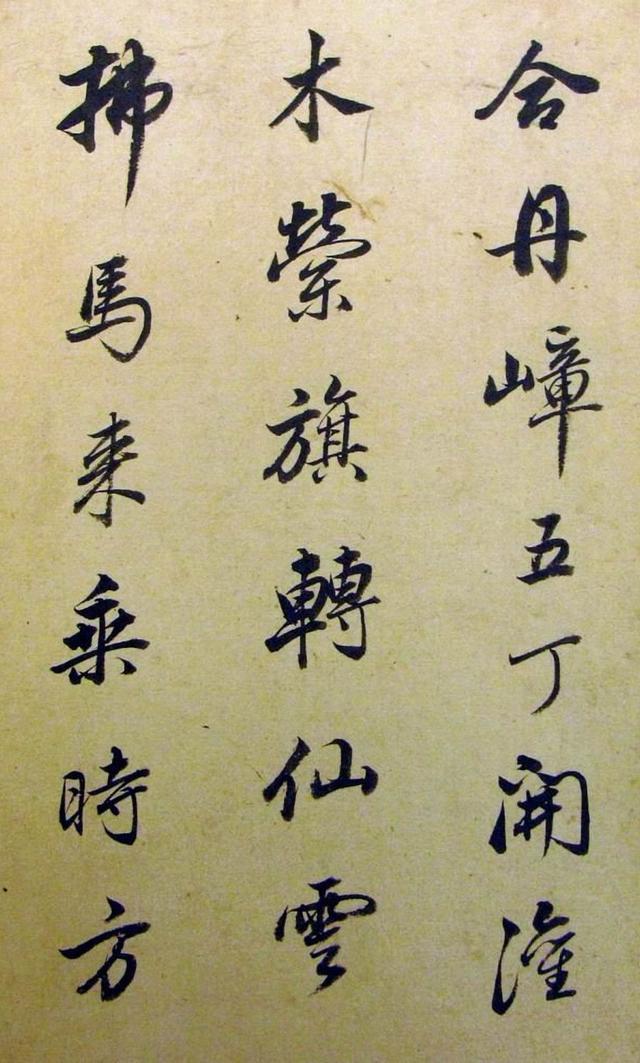 合丹嶂五丁開灌
木縈旗轉仙雲
拂馬来乗時方